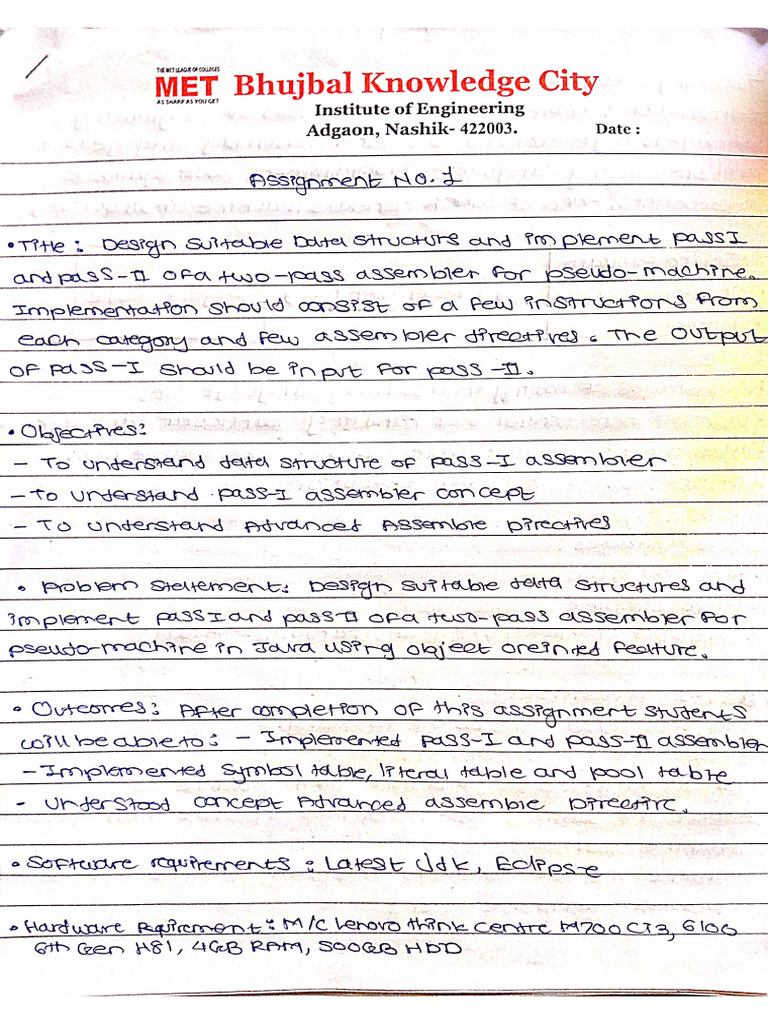 THE MET LEAGUE OF COLLEGES
MET Bhujbal Knowledge City
AS SHARP AS YOU GET
Institute of Engineering
Adgaon, Nashik- 422003. Date :
Assignment No. 1
• Title : Design suitable Data structure and implement pass I
and pass-II of a two-pass assembler for pseudo-machine.
Implementation should consist of a few instructions from
each category and few assembler directives. The output
of pass-I should be input for pass-II.
• Objectives:
- To understand data structure of pass-I assembler
- To understand pass-I assembler concept
- To understand Advanced Assemble Directives
• Problem Statement: Design suitable data structures and
implement pass I and pass II of a two-pass assembler for
pseudo-machine in Java using object oreinted feature.
• Outcomes: After completion of this assignment students
will be able to: - Implemented pass-I and pass-II assembler
- Implemented symbol table, literal table and pool table
- Understood concept Advanced assemble Directive.
• Software requirements : Latest Jdk, Eclipse
• Hardware Rquirement: M/C Lenovo think centre M700 CI3, 6100
6th Gen H81, 4GB RAM, 500GB HDD